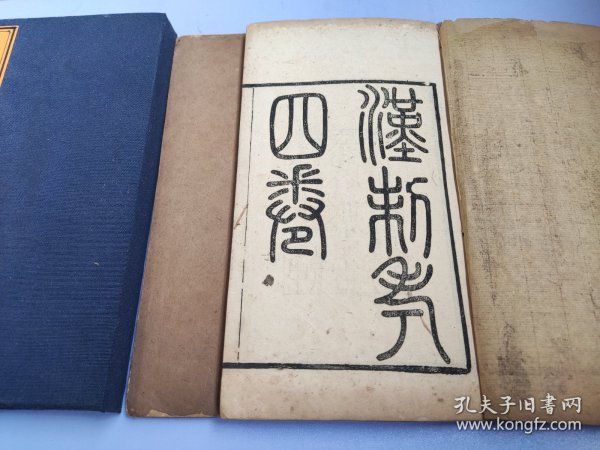 漢制考
四卷
孔夫子旧書网
www.kongfz.com